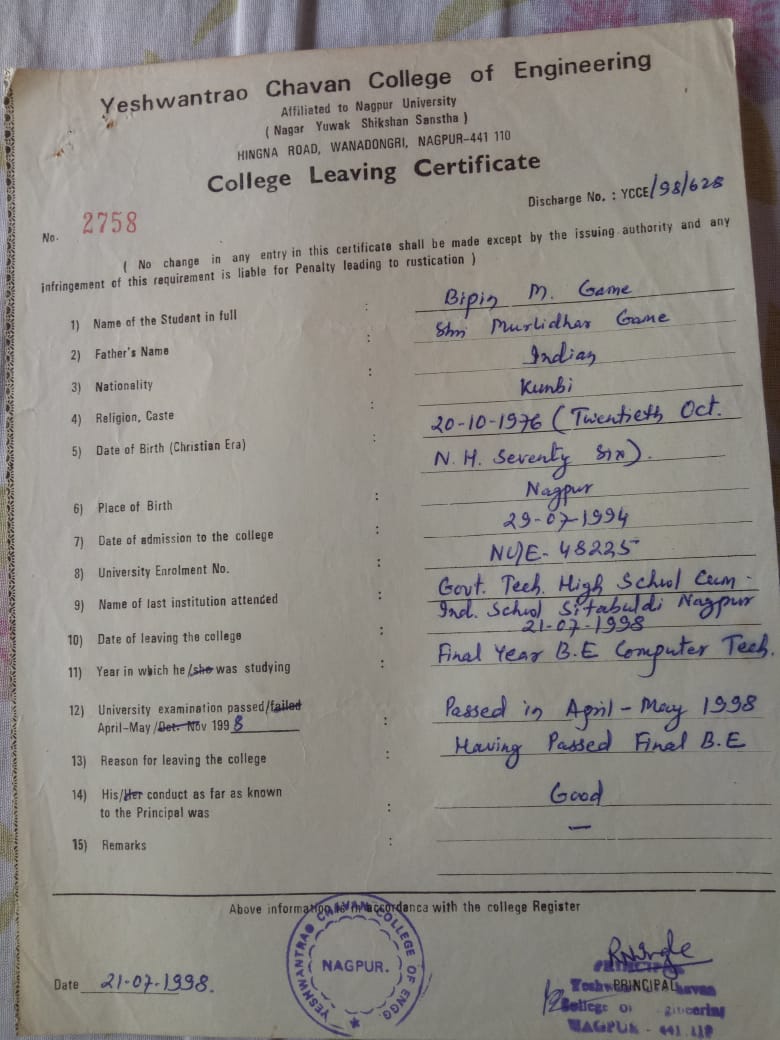 Yeshwantrao Chavan College of Engineering
Affiliated to Nagpur University
( Nagar Yuwak Shikshan Sanstha )
HINGNA ROAD, WANADONGRI, NAGPUR-441 110
College Leaving Certificate
Discharge No. : YCCE/98/628
No. 2758
( No change in any entry in this certificate shall be made except by the issuing authority and any
infringement of this requirement is liable for Penalty leading to rustication )
1) Name of the Student in full : Bipin M. Game
2) Father's Name : Shri Murlidhar Game
3) Nationality : Indian
4) Religion, Caste : Kunbi
5) Date of Birth (Christian Era) : 20-10-1976 (Twentieth Oct.
N. H. Seventy Six).
6) Place of Birth : Nagpur
7) Date of admission to the college : 29-07-1994
8) University Enrolment No. : NU/E-48225
9) Name of last institution attended : Govt. Tech. High School Cum-
Ind. School Sitabuldi Nagpur
10) Date of leaving the college : 21-07-1998
11) Year in which he/she was studying : Final Year B.E Computer Tech.
12) University examination passed/failed
April-May/Oct. Nov 1998 : Passed in April-May 1998
13) Reason for leaving the college : Having Passed Final B.E
14) His/Her conduct as far as known
to the Principal was : Good
15) Remarks : —
Above information is in accordance with the college Register
YESHWANTRAO CHAVAN COLLEGE OF ENGG.
NAGPUR.
Date 21-07-1998.
PRINCIPAL
PRINCIPAL
College of
NAGPUR - 441 110